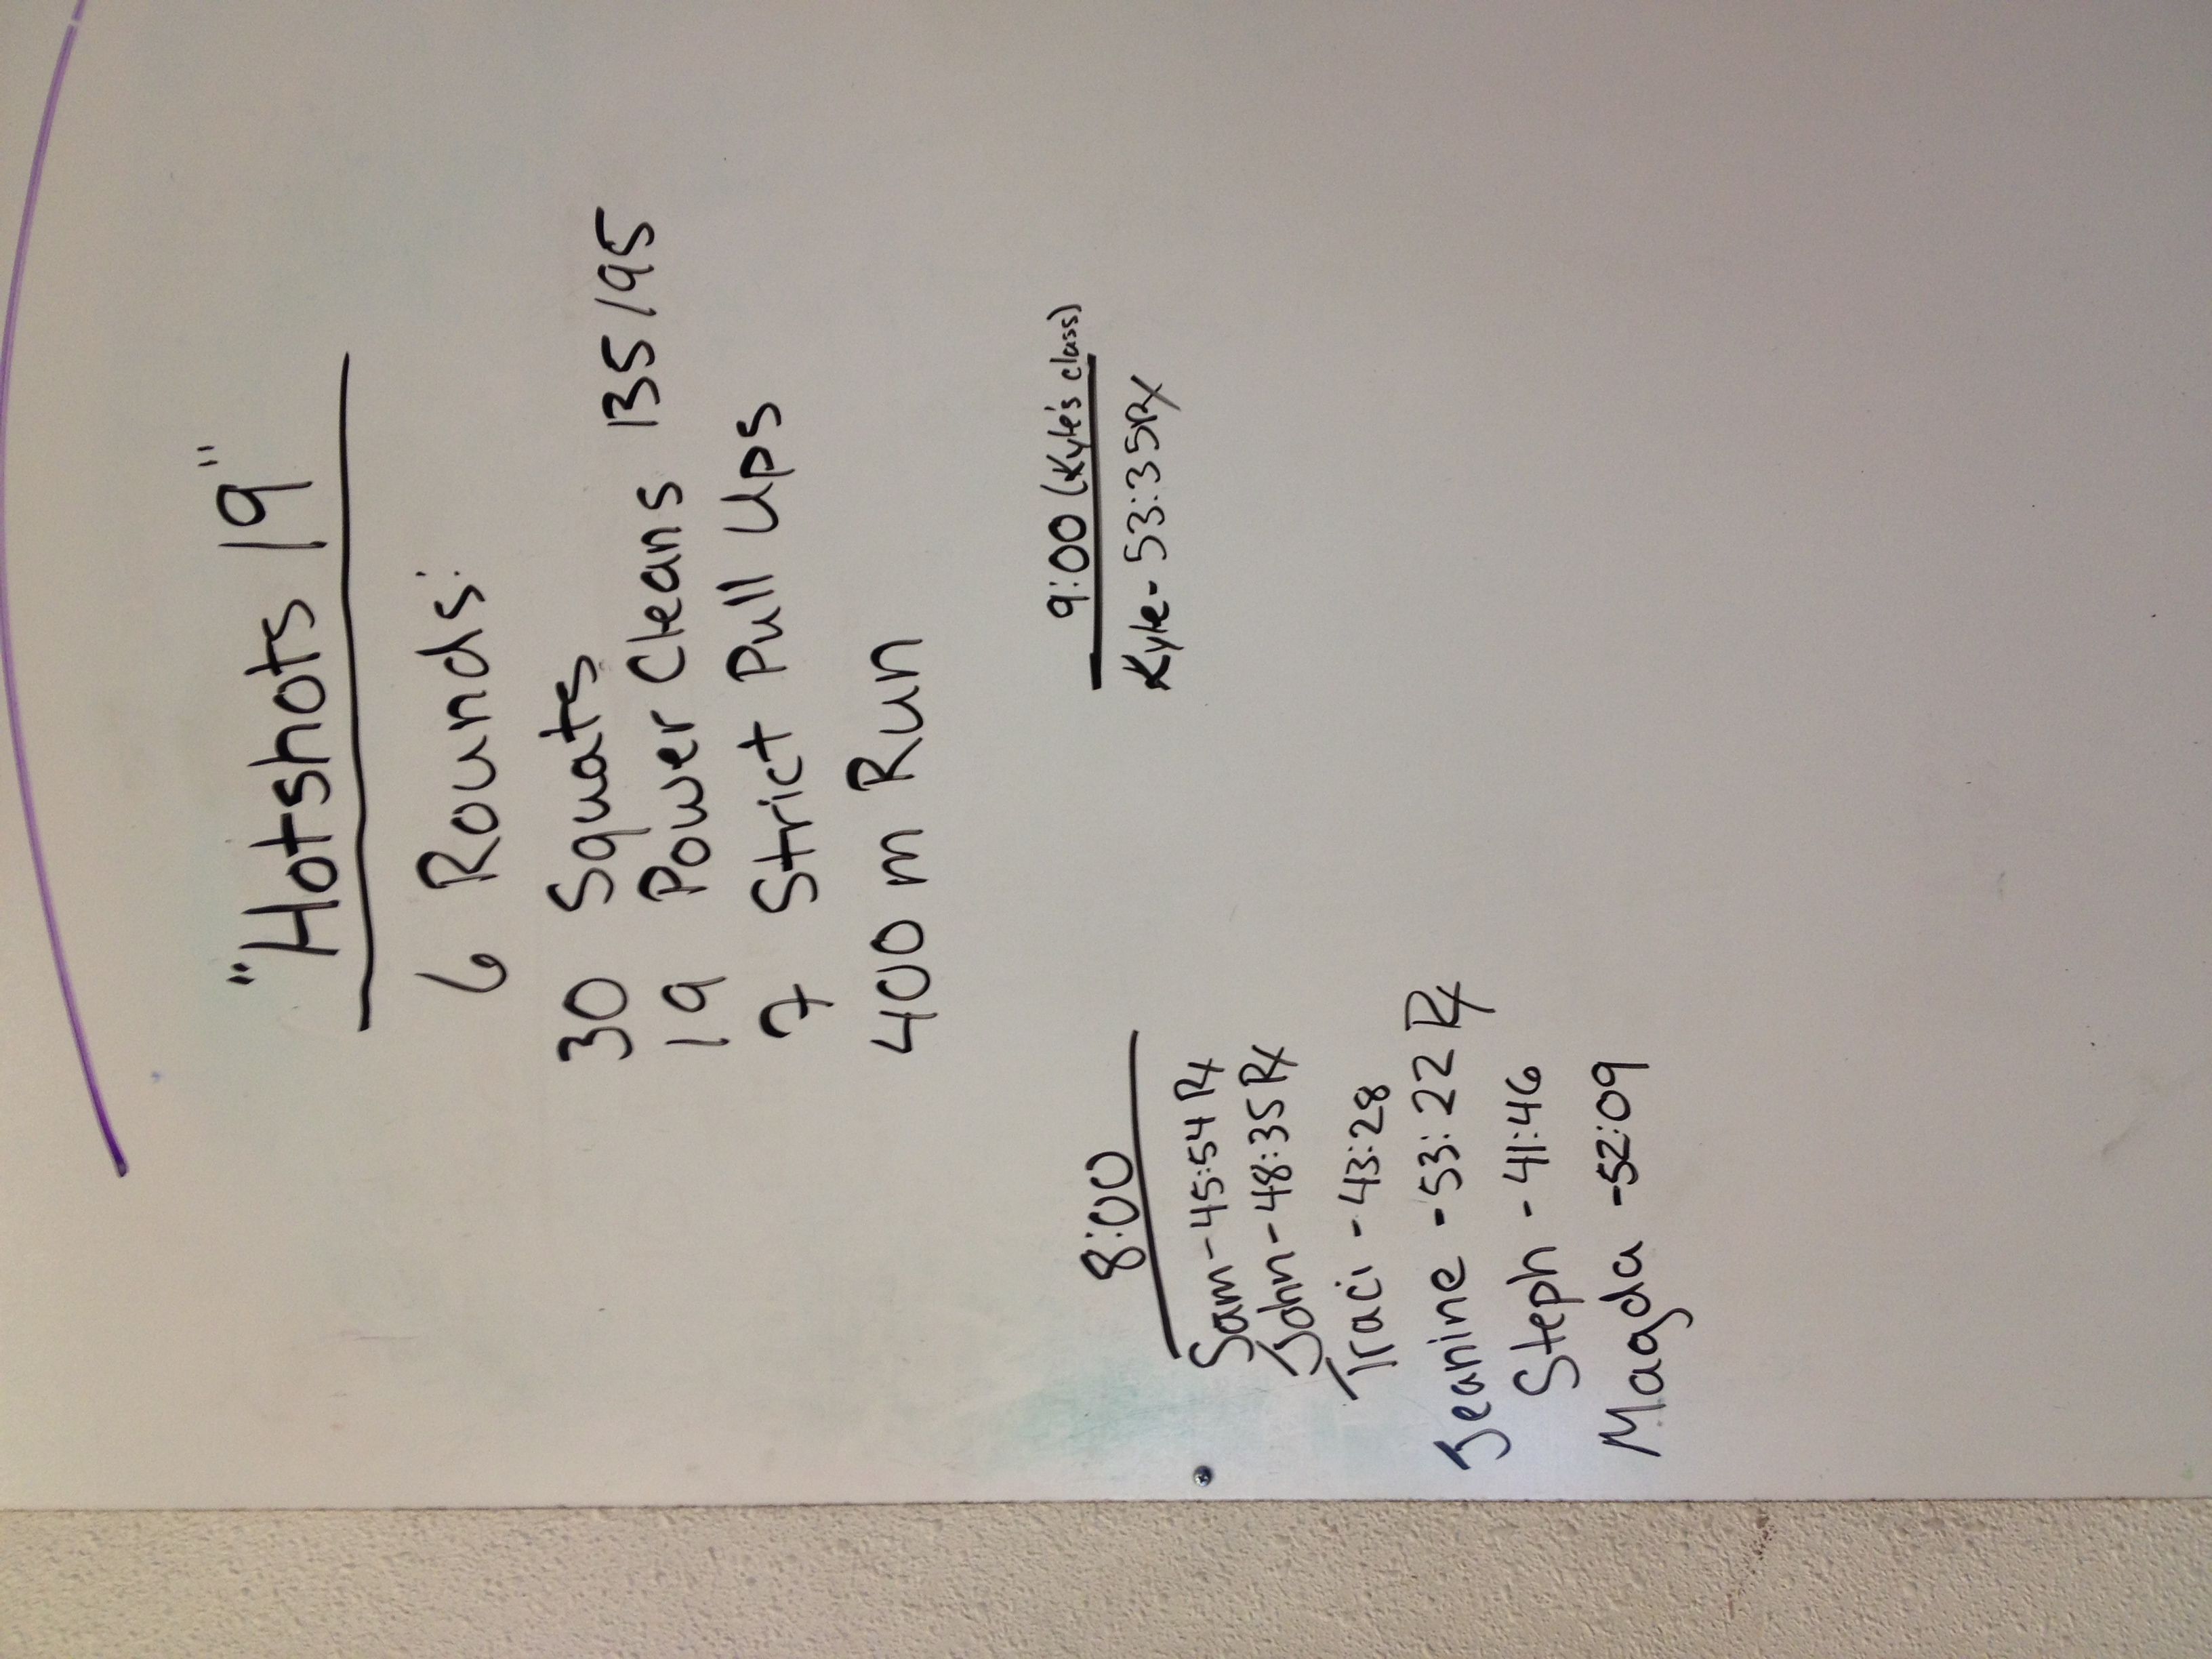 "Hotshots 19"
6 Rounds:
30 Squats
19 Power Cleans 135/95
7 Strict Pull Ups
400 m Run
8:00
Sam - 45:54 Rx
John - 48:35 Rx
Traci - 43:28
Jeanine - 53:22 Rx
Steph - 41:46
Magda - 52:09
9:00 (Kyle's class)
Kyle - 53:35 Rx